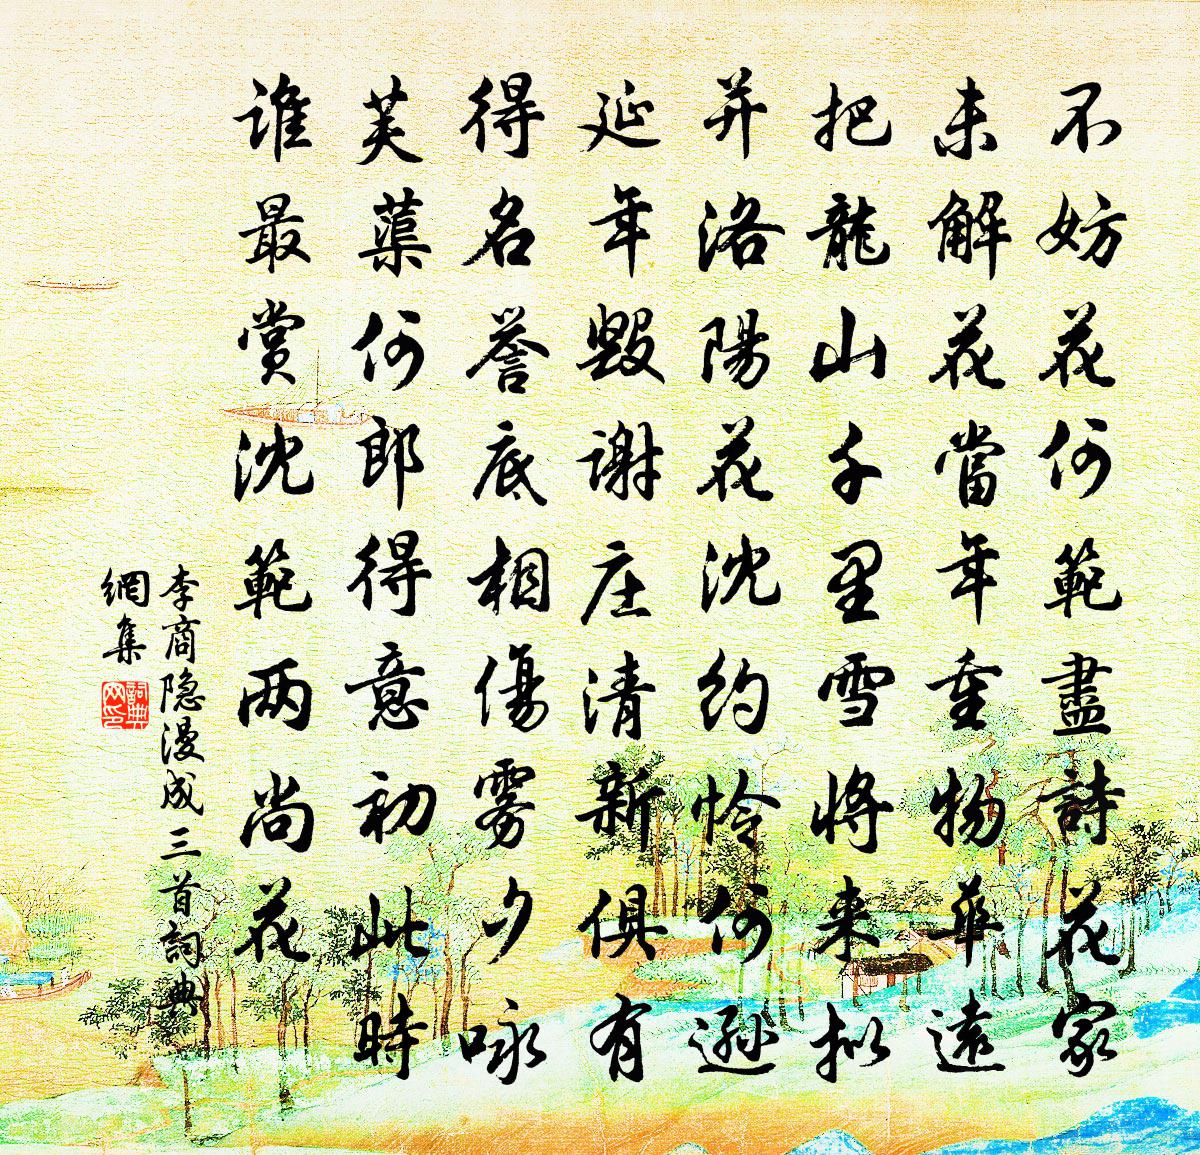 不妨花何範盡詩花家
未解花當年重物華遠
把龍山千里雪將来拟
并洛陽花沈約怜何遜
延年毀謝庄清新俱有
得名誉底相傷雾夕咏
芙蕖何郎得意初此時
谁最賞沈範两尚花
李商隐漫成三首詞典
網集
詞典
网印